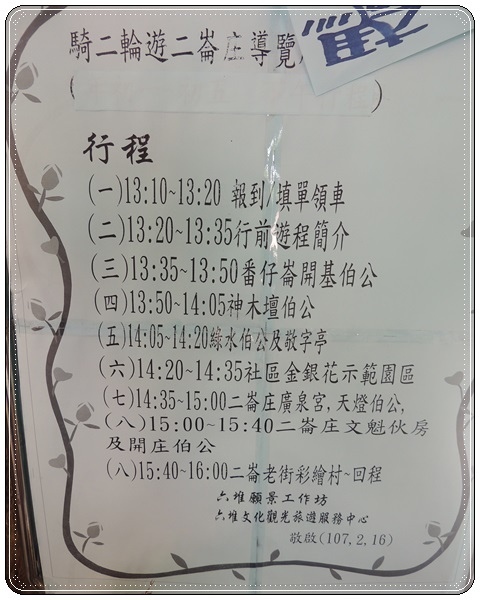 騎二輪遊二崙庄導覽
(                    )
行程
(一)13:10~13:20 報到/填單領車
(二)13:20~13:35行前遊程簡介
(三)13:35~13:50番仔崙開基伯公
(四)13:50~14:05神木壇伯公
(五)14:05~14:20綠水伯公及敬字亭
(六)14:20~14:35社區金銀花示範園區
(七)14:35~15:00二崙庄廣泉宮,天燈伯公,
(八)15:00~15:40二崙庄文魁伙房
及開庄伯公
(八)15:40~16:00二崙老街彩繪村~回程
六堆願景工作坊
六堆文化觀光旅遊服務中心
敬啟(107,2,16)